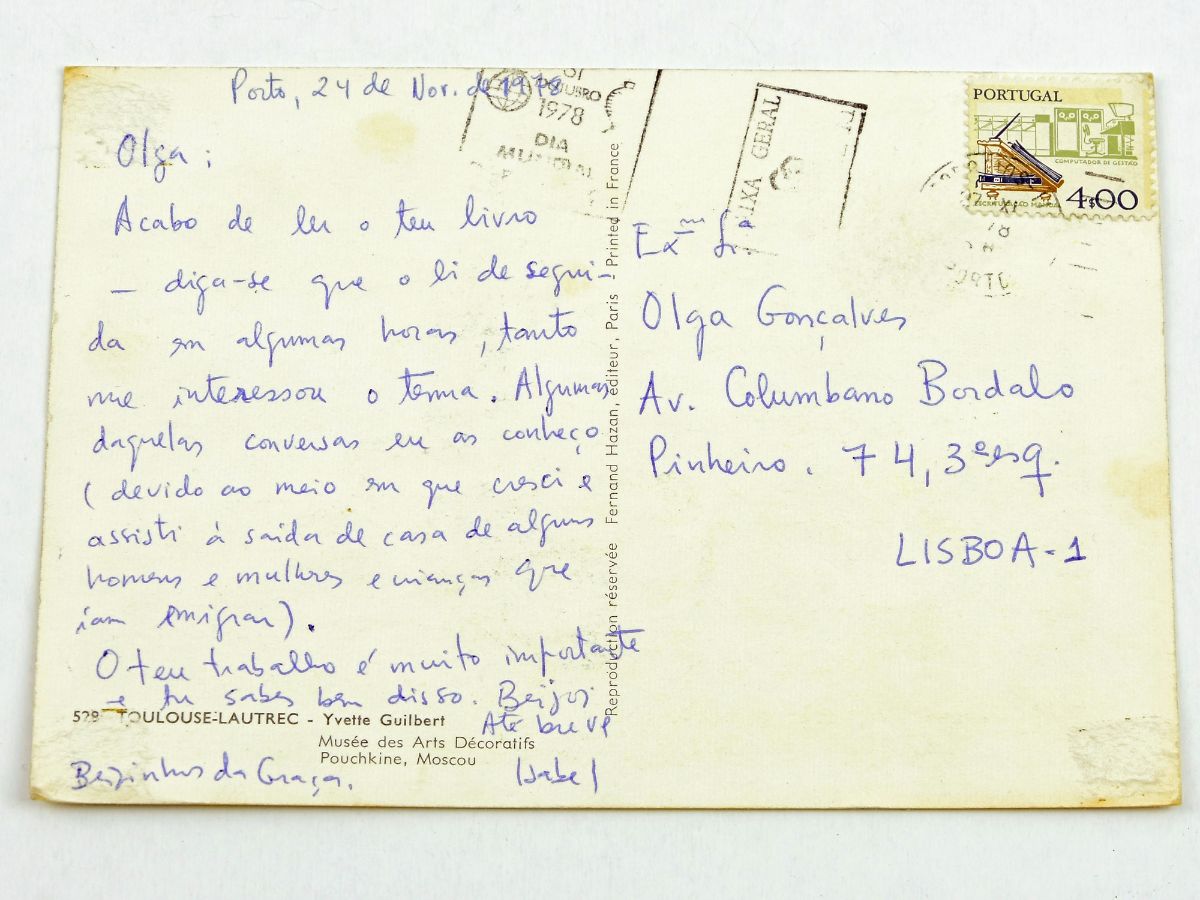 Porto, 24 de Nov. de 1978
Olga:
Acabo de ler o teu livro
— diga-se que o li de segui-
da em algumas horas, tanto
me interessou o tema. Algumas
daquelas conversas eu as conheço
(devido ao meio em que cresci e
assisti à saída de casa de alguns
homens e mulheres e crianças que
iam emigrar).
O teu trabalho é muito importante
e tu sabes bem disso. Beijos
Até breve
Isabel
Beijinhos da Graça.
529 TOULOUSE-LAUTREC - Yvette Guilbert
Musée des Arts Décoratifs
Pouchkine, Moscou
Reproduction réservée Fernand Hazan, éditeur, Paris Printed in France
OUTUBRO
1978
DIA
MUNDIAL
GERAL
PORTUGAL
COMPUTADOR DE GESTÃO
ESCRITURAÇÃO MANUAL
4$00
78
Exma Sra
Olga Gonçalves
Av. Columbano Bordalo
Pinheiro. 74, 3º esq.
LISBOA-1